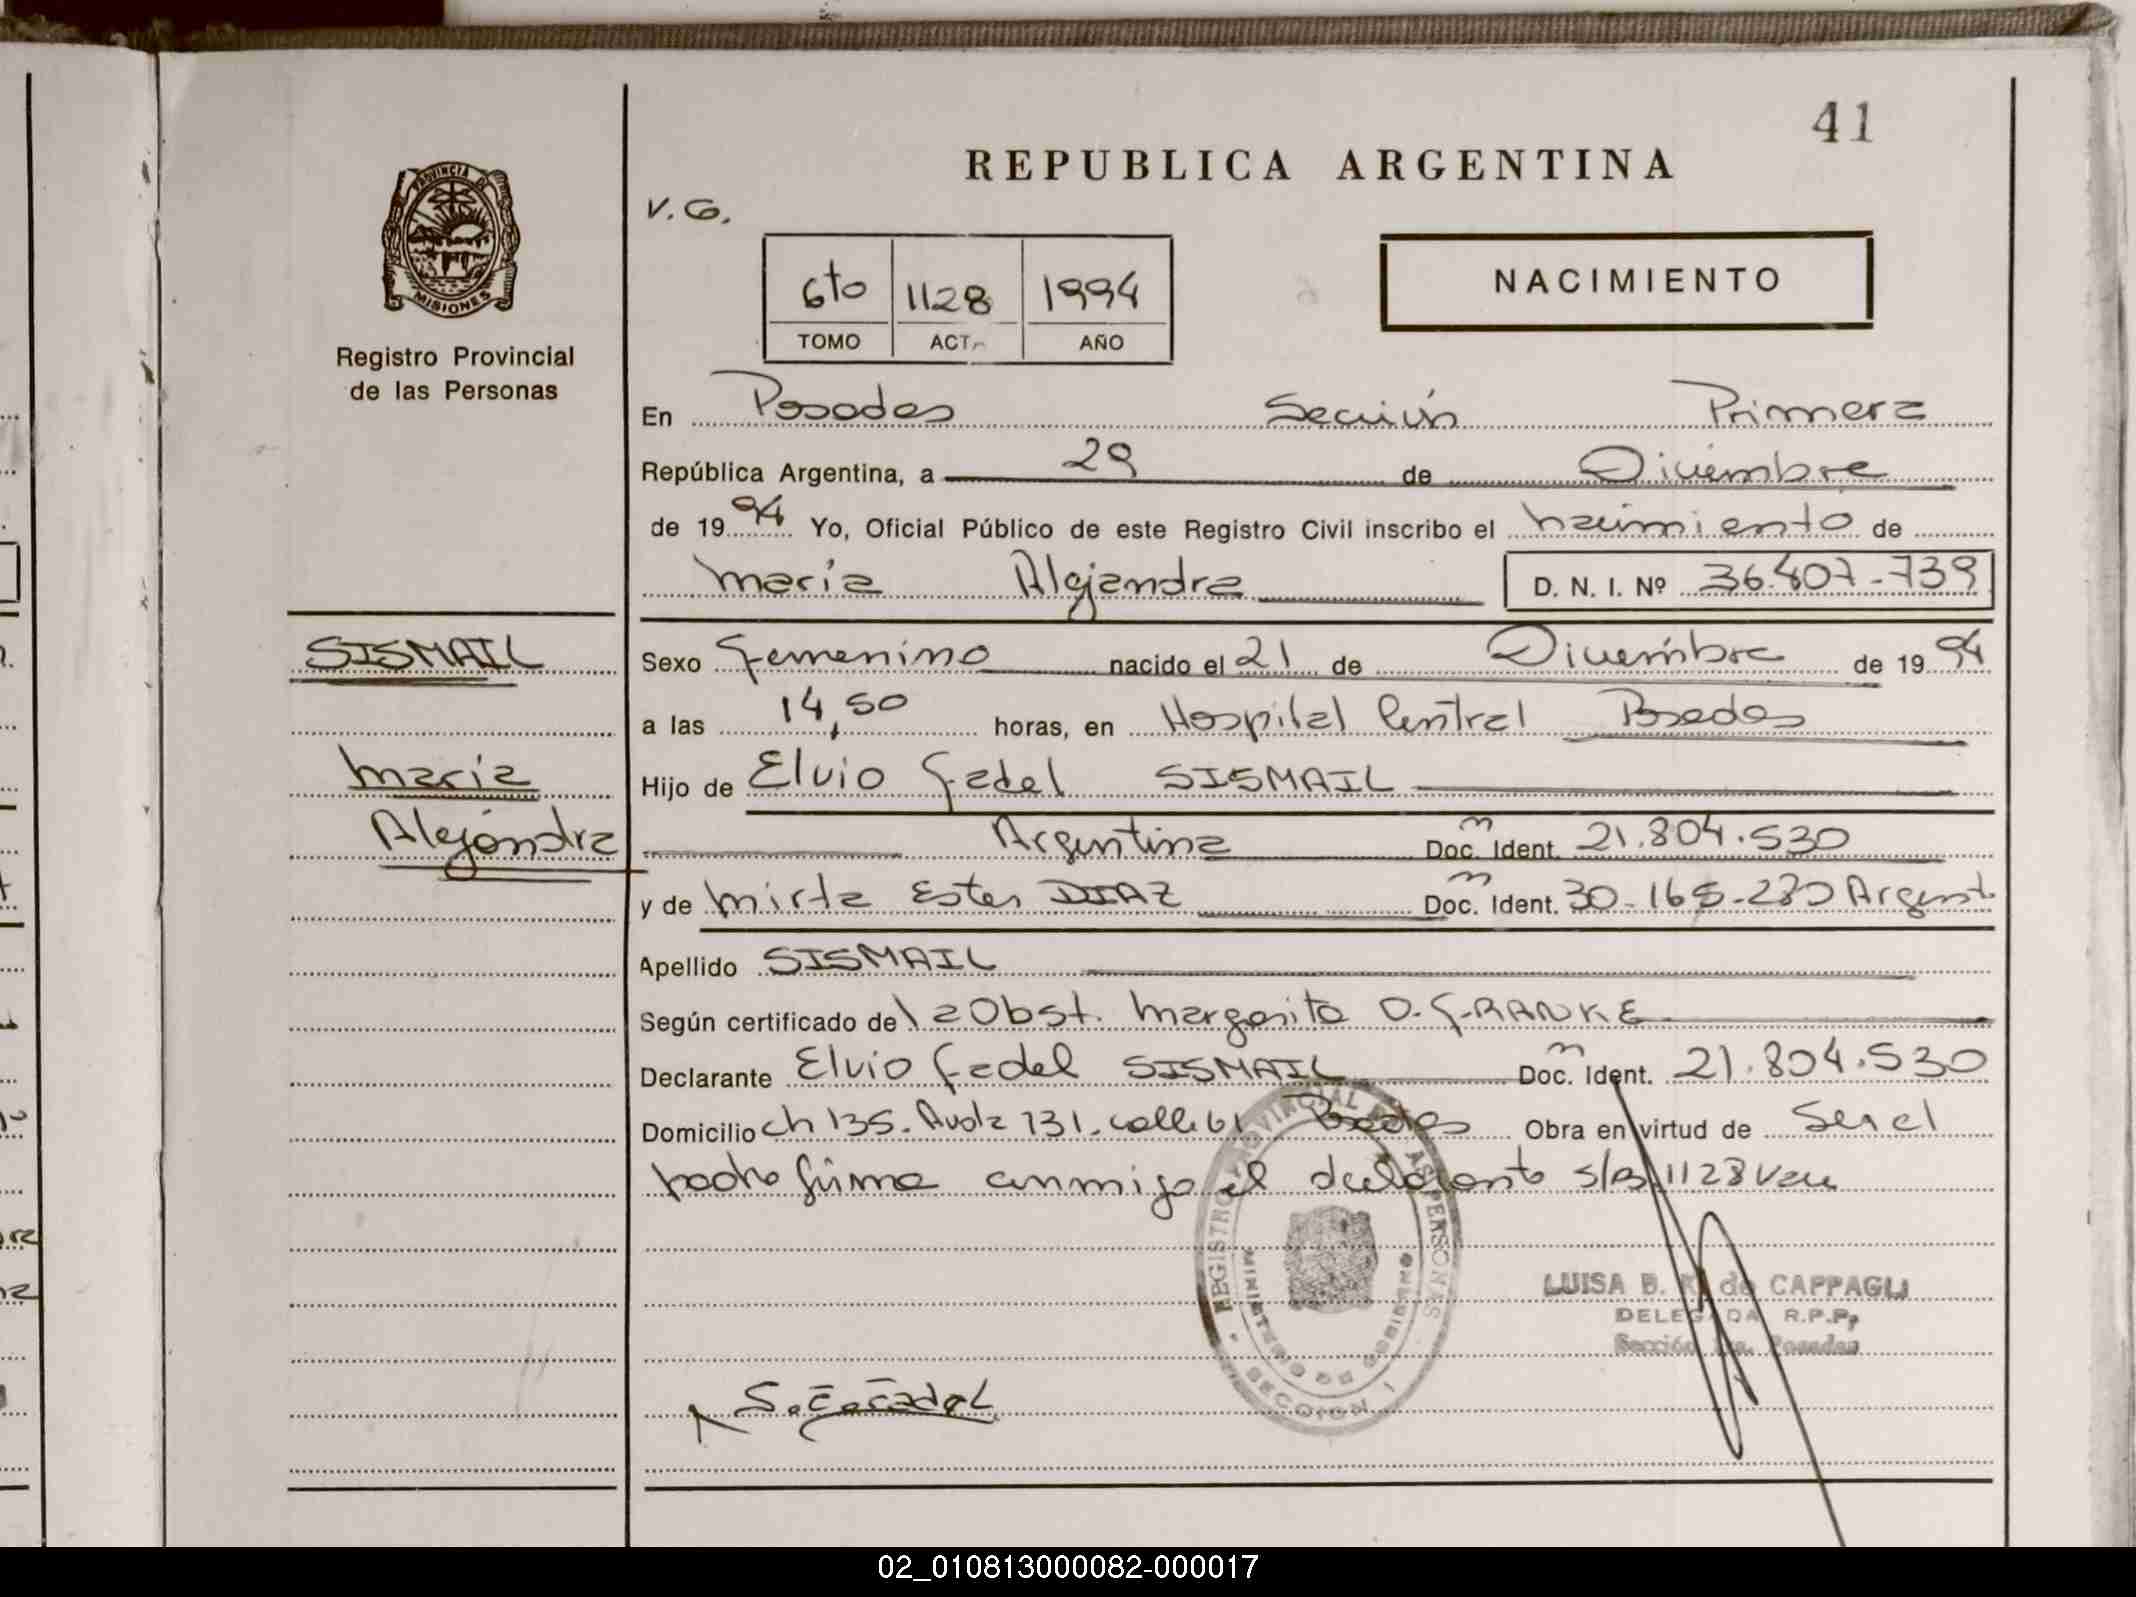 41
REPUBLICA ARGENTINA
V.G.
PROVINCIA DE
MISIONES
Registro Provincial
de las Personas
6to 1128 1994
TOMO ACT. AÑO
NACIMIENTO
En Posadas Sección Primera
República Argentina, a 29 de Diciembre
de 1994 Yo, Oficial Público de este Registro Civil inscribo el nacimiento de
Maria Alejandra D. N. I. Nº 36.407-739
SISMAIL
Maria
Alejandra
Sexo Femenino nacido el 21 de Diciembre de 1994
a las 14,50 horas, en Hospital Central Posadas
Hijo de Elvio Fadel SISMAIL
Argentina Doc. Ident. 21.804.530
y de Mirta Ester DIAZ Doc. Ident. 30-165-230 Argent
Apellido SISMAIL
Según certificado de la Obst. Margarita O. FRANKE
Declarante Elvio Fadel SISMAIL Doc. Ident. 21.804.530
Domicilio ch 135. Avda 131. calle 61 Posadas Obra en virtud de Ser el
padre firma conmigo el declarante 1128
REGISTRO PROVINCIAL DE LAS PERSONAS
MINISTERIO DE GOBIERNO
SECCION 1
LUISA B. K. de CAPPAGLI
DELEGADA R.P.P.
Sección 1ra. Posadas
02_010813000082-000017